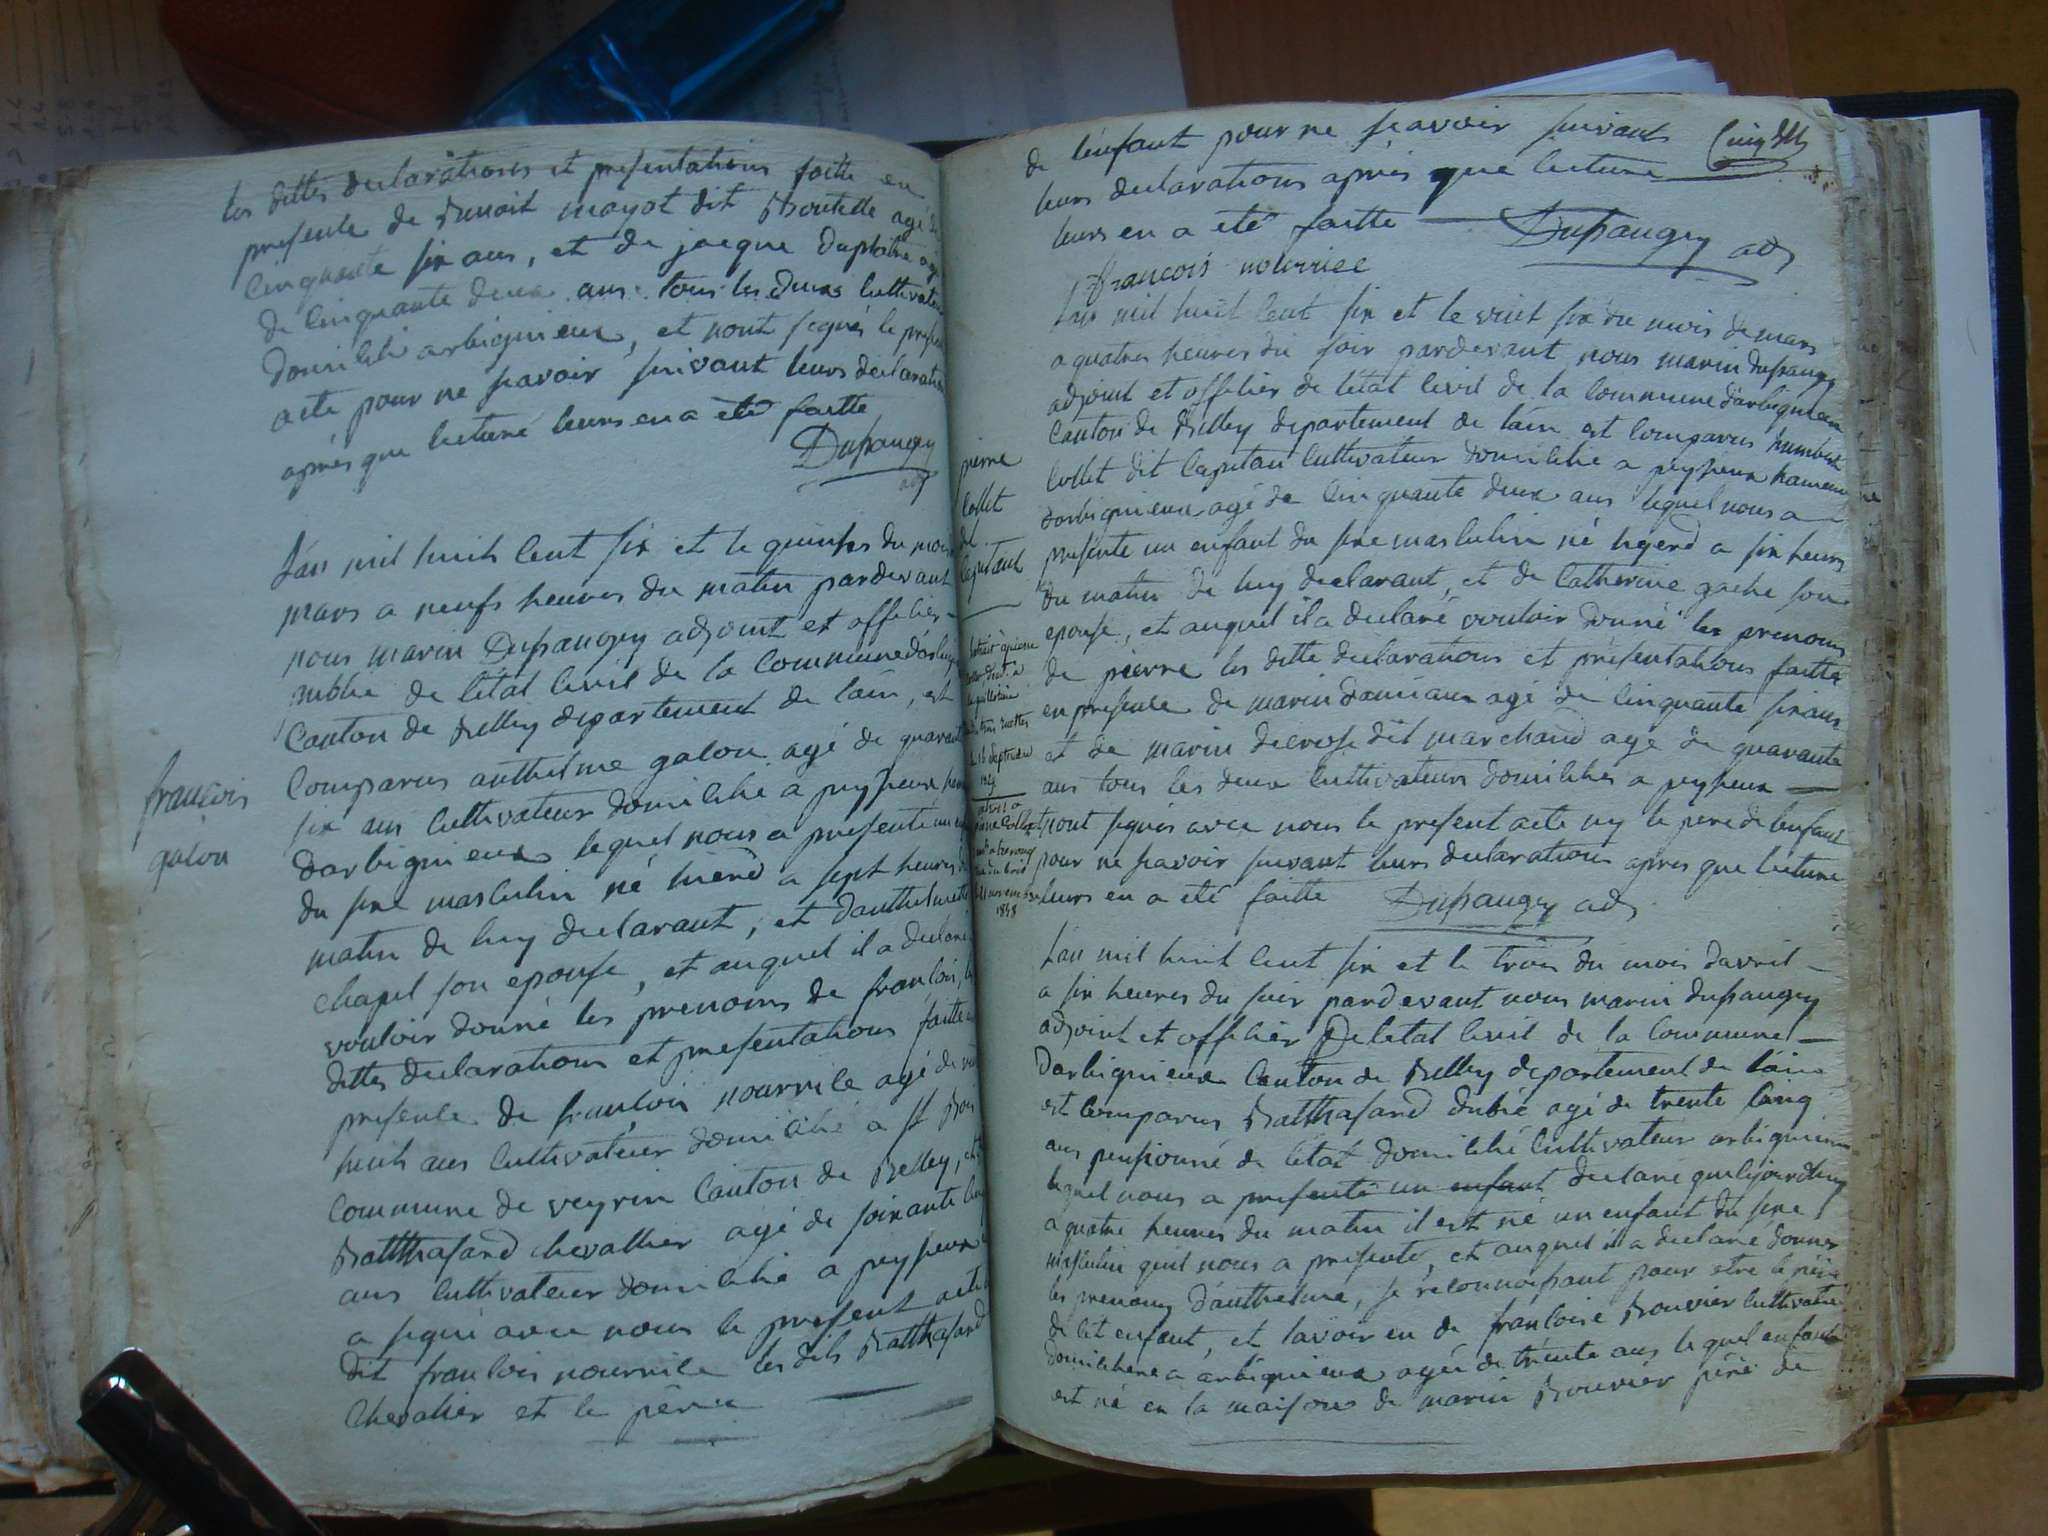 les dittes declarations et presentations faitte en
presente de Benoit mayot dit Bouteille agé de
cinquante six ans, et de jacque
de cinquante deux ans tous les deux cultivateurs
domicilié arbignieux, et nont signés le present
acte pour ne scavoir suivant leurs declaration
aprés que lecture leurs en a été faitte
Dupaugey
adj
L'an mil huit cent six et le quinses du mois
mars a neufs heures du matin pardevant
nous marin Dupaugey adjoint et officier
publie de l'état civil de la commune d'arbig
canton de Belley departement de l'ain, est
comparus anthelme galon agé de quarante
six ans cultivateur domicilié a peyzieux ham
françois
galon
darbignieux lequel nous a presenté un en
du sexe masculin né hierd a sept heures d
matin de luy declarant, et danthelmette
chapel son epouse, et auquel il a declaré
vouloir donné les prenoms de françois, les
dittes declarations et presentations faitte en
presente de françois nourrice agé de vint
huit ans cultivateur domicilié a st Bois
commune de veyrin canton de Belley, et
Balthasard chevallier agé de soixante cinq
ans cultivateur domicilié a peyzieux
a signé avec nous le present acte
dit françois nourrice les dits Balthasard
chevalier et le père
de l'enfant pour ne scavoir suivant
leurs declarations aprés que lecture
leurs en a eté faitte Dupaugey adj
françois nourrice
L'an mil huit cent six et le vint six du mois de mars
a quatres heures du soir pardevant nous marin dupaugey
adjoint et officier de l'état civil de la commune d'arbignieux
canton de Belley departement de l'ain est comparus humbert
collet dit capitan cultivateur domicilié a peyzieux hameau
darbignieux agé de cinquante deux ans lequel nous a
presenté un enfant du sexe masculin né hyerd a six heures
du matin de luy declarant, et de Catherine gache son
epouse, et auquel il a declaré vouloir donné les prenoms
de pierre les ditte declarations et présentations faitte
en presence de marin damiaux agé de cinquante six ans
et de marin decroze dit marchand agé de quarante
ans tous les deux cultivateurs domicilies a peyzieux
nont signés avec nous le present acte ny le père de l'enfant
pour ne scavoir suivant leurs declarations apres que lecture
leurs en a eté faitte Dupaugey adj
pierre
collet
dit
capitant
extrait à pierre
16 septembre
pierre Collet
11 novembre
1848
L'an mil huit cent six et le trois du mois davril
a six heures du soir pardevant nous marin dupaugey
adjoint et officier De letat civil de la commune
Darbignieux canton de Belley departement de lain
est comparus Balthasard dubié agé de trente cinq
ans pensionné de l'état domicilié cultivateur arbignieux
lequel nous a presenté un enfant declaré que cejourdhuy
a quatre heures du matin il est né un enfant du sexe
masculin quil nous a presenté, et auquel il a declaré donner
les prenoms d'anthelme, se reconnoissant pour etre le père
de cet enfant, et lavoir eu de françoise Bouvier cultivatrice
domiciliere a arbignieux agée de trente ans le quel enfant
est né en la maison de marin Bouvier père de